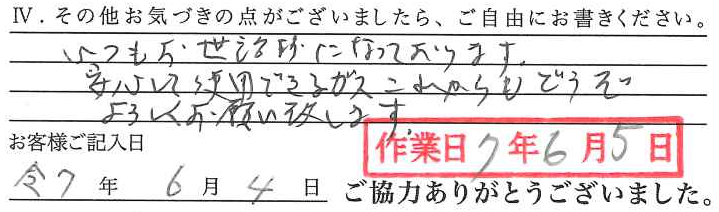 Ⅳ．その他お気づきの点がございましたら、ご自由にお書きください。
いつもお世話様になっております。
安心して使用できるガスこれからもどうぞ
よろしくお願い致します。
お客様ご記入日
作業日7年6月5日
令7年6月4日
ご協力ありがとうございました。